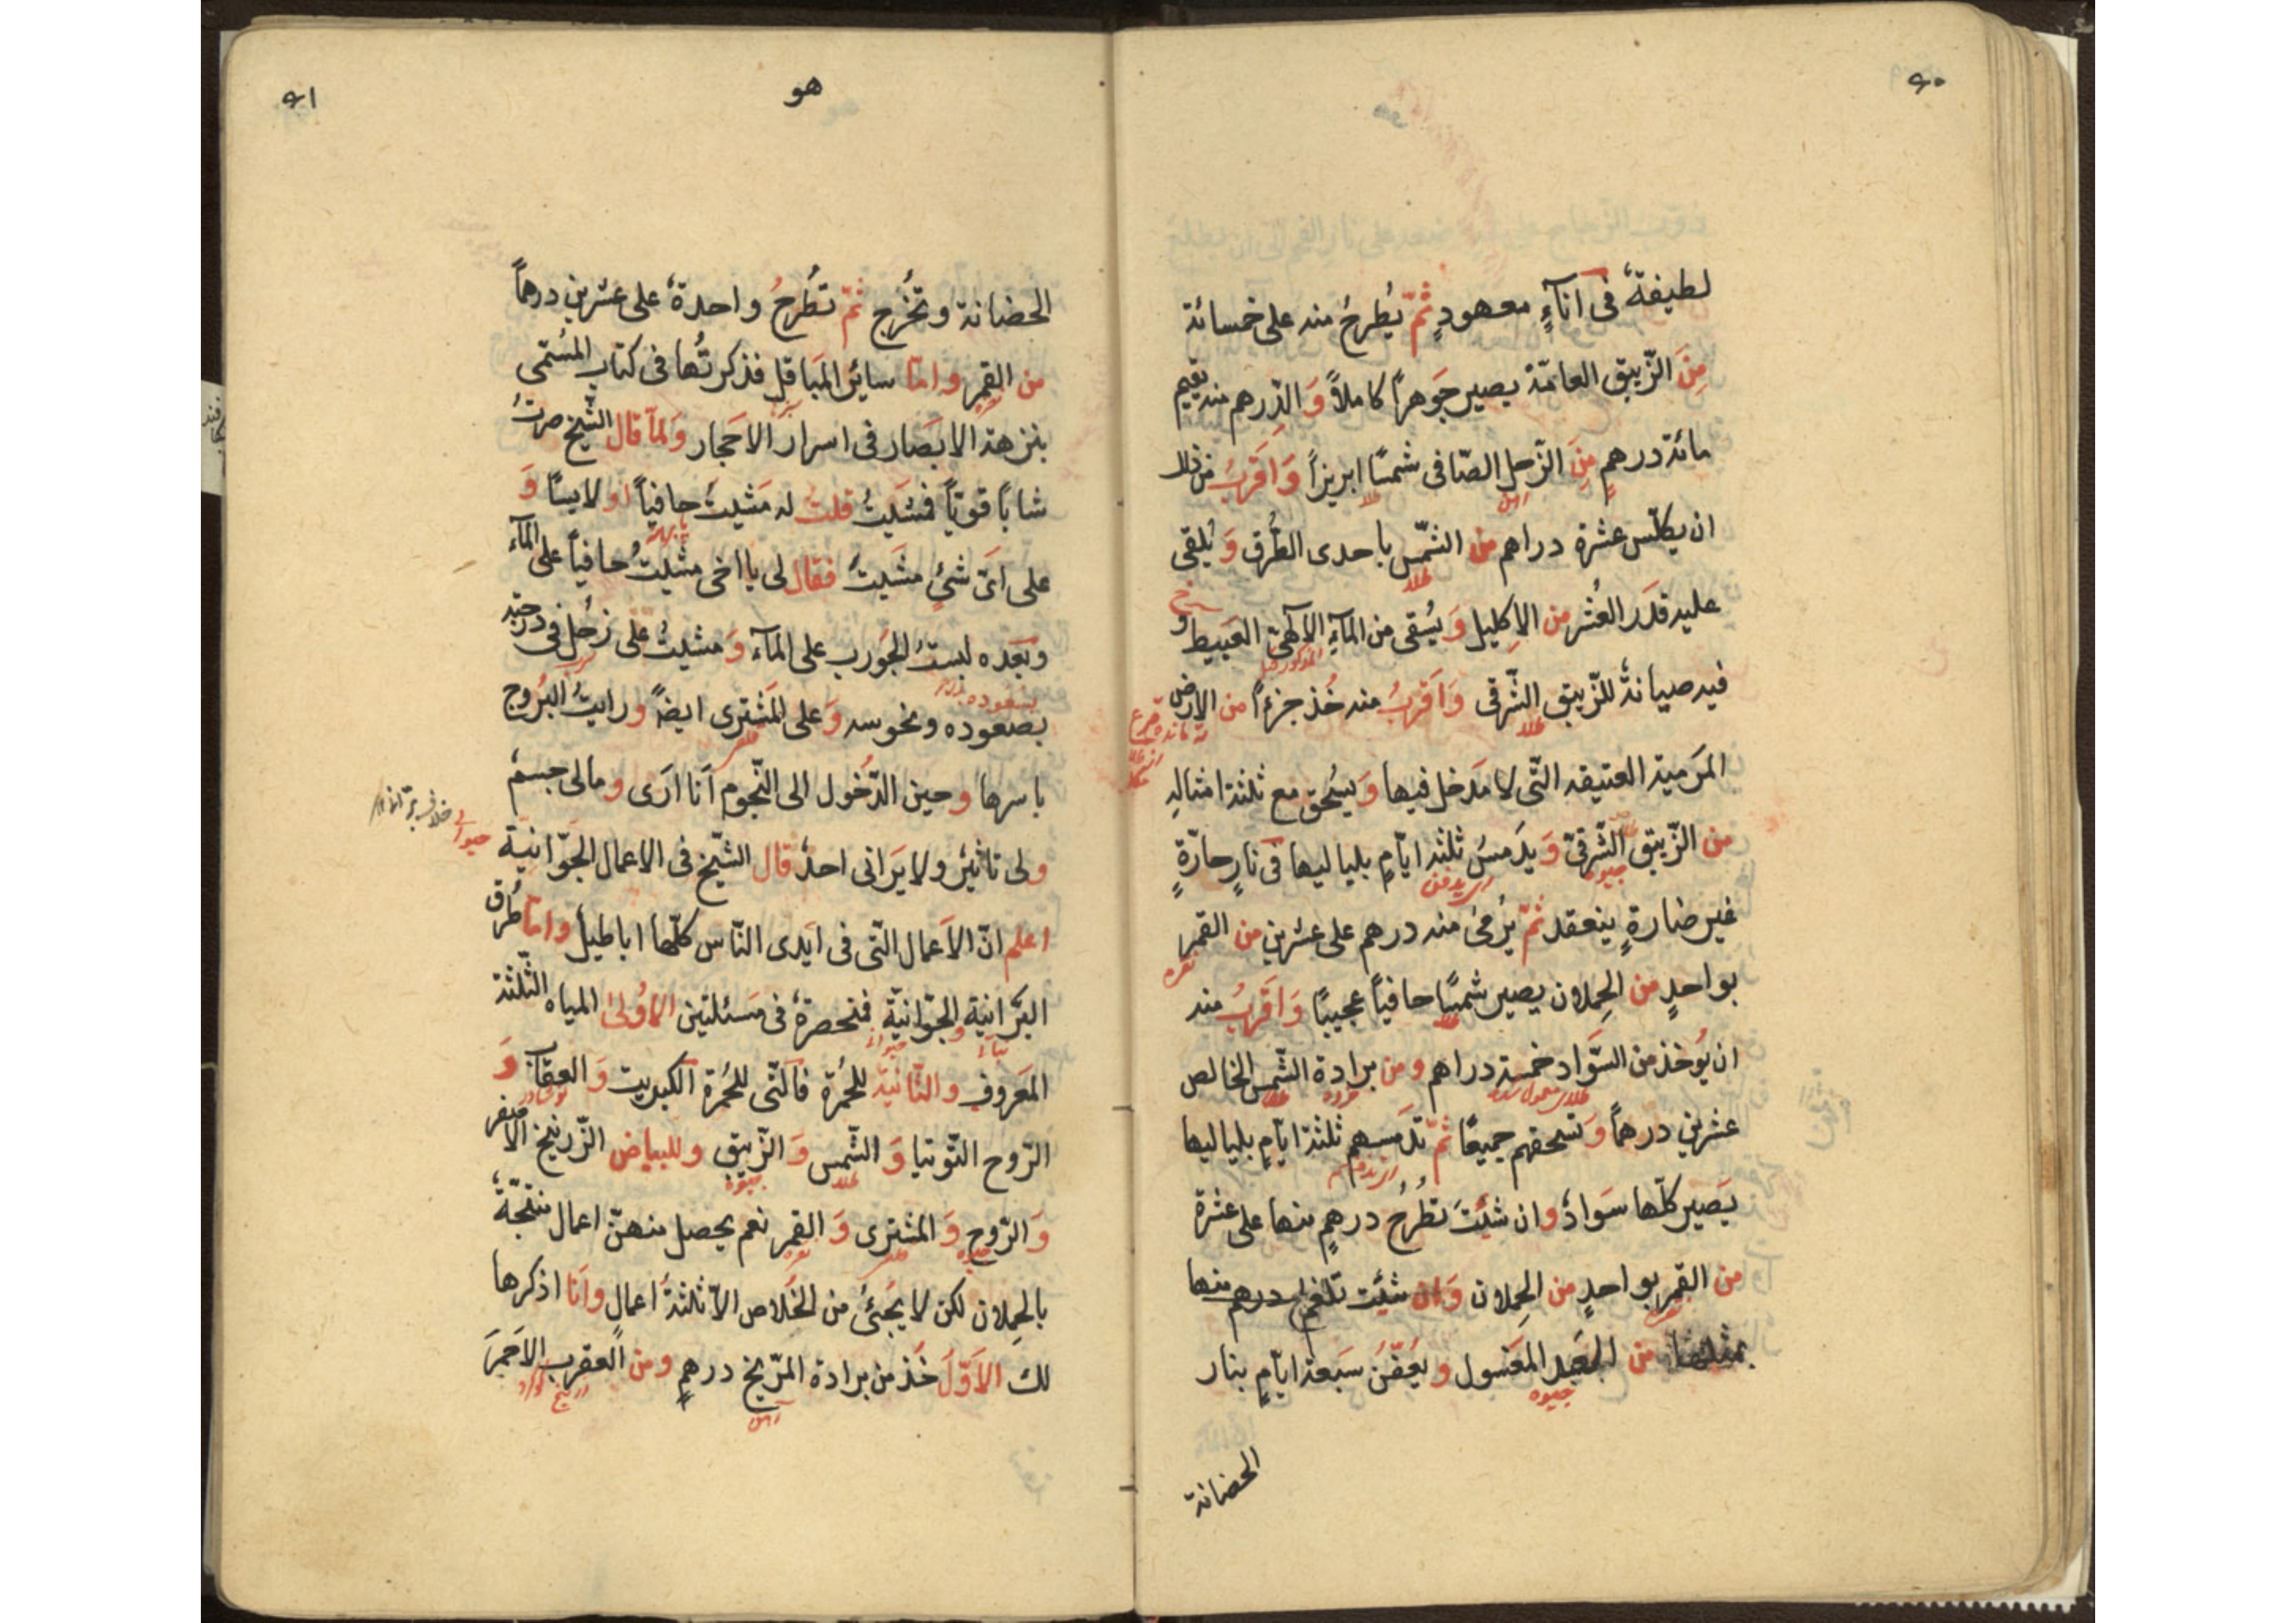 ٩٠
لطیفةً فی اناۤءٍ معهودٍ ثمّ یُطرحُ منه علی خمسائة
مِنَ الزّیبق العامّة یصیر جَوهراً کاملاً وَ الدِّرهم منه یقیم
مائة درهمٍ مِنَ الزّحل الصّافی شمسًا ابریزاً وَ اَقرَبُ من ذلك
ان یکلّس عشرة دراهم من الشّمس باحدی الطُّرق وَ یُلقی
طلا
علیه قدَر العُشر من الاِکلیل وَ یُسقی من المآءِ الآلهیّ العَبیط و
المذکور قبل
فیه صیانةً للزّیبق الشّرقی وَ اَقربُ منه خُذ جزءاً من الارض
طلا
المَرمیة العتیقه الّتی لا مَدخل فیها وَ یُسحق مع ثلثة امثاله
من الزّیبق الشّرقیّ وَ یدَمسُ ثلثه ایّامٍ بلیالیها فی نارٍ حارّةٍ
جیوه
غیر ضارةٍ ینعقد ثمّ یُرمیٰ منه درهم علی عشرین من القمر
نقره
بواحدٍ من الحِملان یصیر شمسًا حافیاً عجیبًا وَ اَقربُ منه
طلا
ان یُوخذ من السَّواد خمسة دراهم و من برادة الشّمس الخالص
طلا
عشرین درهماً وَ تسحقهم جمیعًا ثمّ تدَمسهم ثلثة ایّامٍ بلیالیها
یَصیر کلّها سَوادٌ وان شئتَ تطُرحُ درهمٍ منها علی عشرة
من القمر بواحدٍ من الحِملان وَ ان شئت تلغم درهم منها
نقره
بمثلها من العَبد المغَسول و یعُفّنُ سَبعة ایّامٍ بنار
جیوه
الحضانة
٩١
هو
الحضانة و تُخرج ثمّ تطُرحُ واحدةً علی عشرین درهماً
من القمر و امّا سائرُ المیَاقل فذکرتُها فی کتاب المسُمّی
نقره
بنزهة الابصَار فی اسرار الاحَجار وَ لمّا قال الشّیخ صرتُ
شابًاً قویّاً فمشَیتُ قلتُ له مَشیتَ حافیاً او لابسًا وَ
علی ایّ شئٍ مشَیتَ فقال لی یا اخی مشیتُ حافیاً علی المآء
و بَعده لبستُ الجَورب علی المآء وَ مشیتُ علی زحُل فی درجته
بسعوده
بصعوده و نحوسه وَ علی المشَتری ایضاً و رایتُ البُروج
باسرها و حین الدّخُول الی النّجوم اَنا ارَی و مالی جسمٌ
ولی تاثیٌر و لا یَرانی احدٌ قال الشّیخ فی الاعمال الجَوّانیّة
اعلم انّ الاَعمال الّتی فی ایَدی النّاس کلّها اباطیل و امّا طُرق
البَرانیّة و الجَوّانیّة فنحصرةً فی مسَئلتین الاُولیٰ المیاه الثّلثة
المعَروف و الثّانیة للحُمرة فالّتی للحُمرة الکبریت وَ العقاب وَ
نوشادر
الرّوح التّوتیا وَ الشّمس وَ الزّیبق و للبیاض الزّرنیخ الاصفر
طلا
جیوه
وَ الرّوح وَ المشتری وَ القمر نعم یحصل منهنّ اعمال منتجةً
جیوه
نقره
بالحِملان لکن لا یَجئُ من الخَلاص الاّ ثلثةُ اعمال و اَنا اذکرها
لك الاَوّلَ خُذ من برادة المرّیخ درهمٍ و من العقرب الاَحمَرَ
آهن